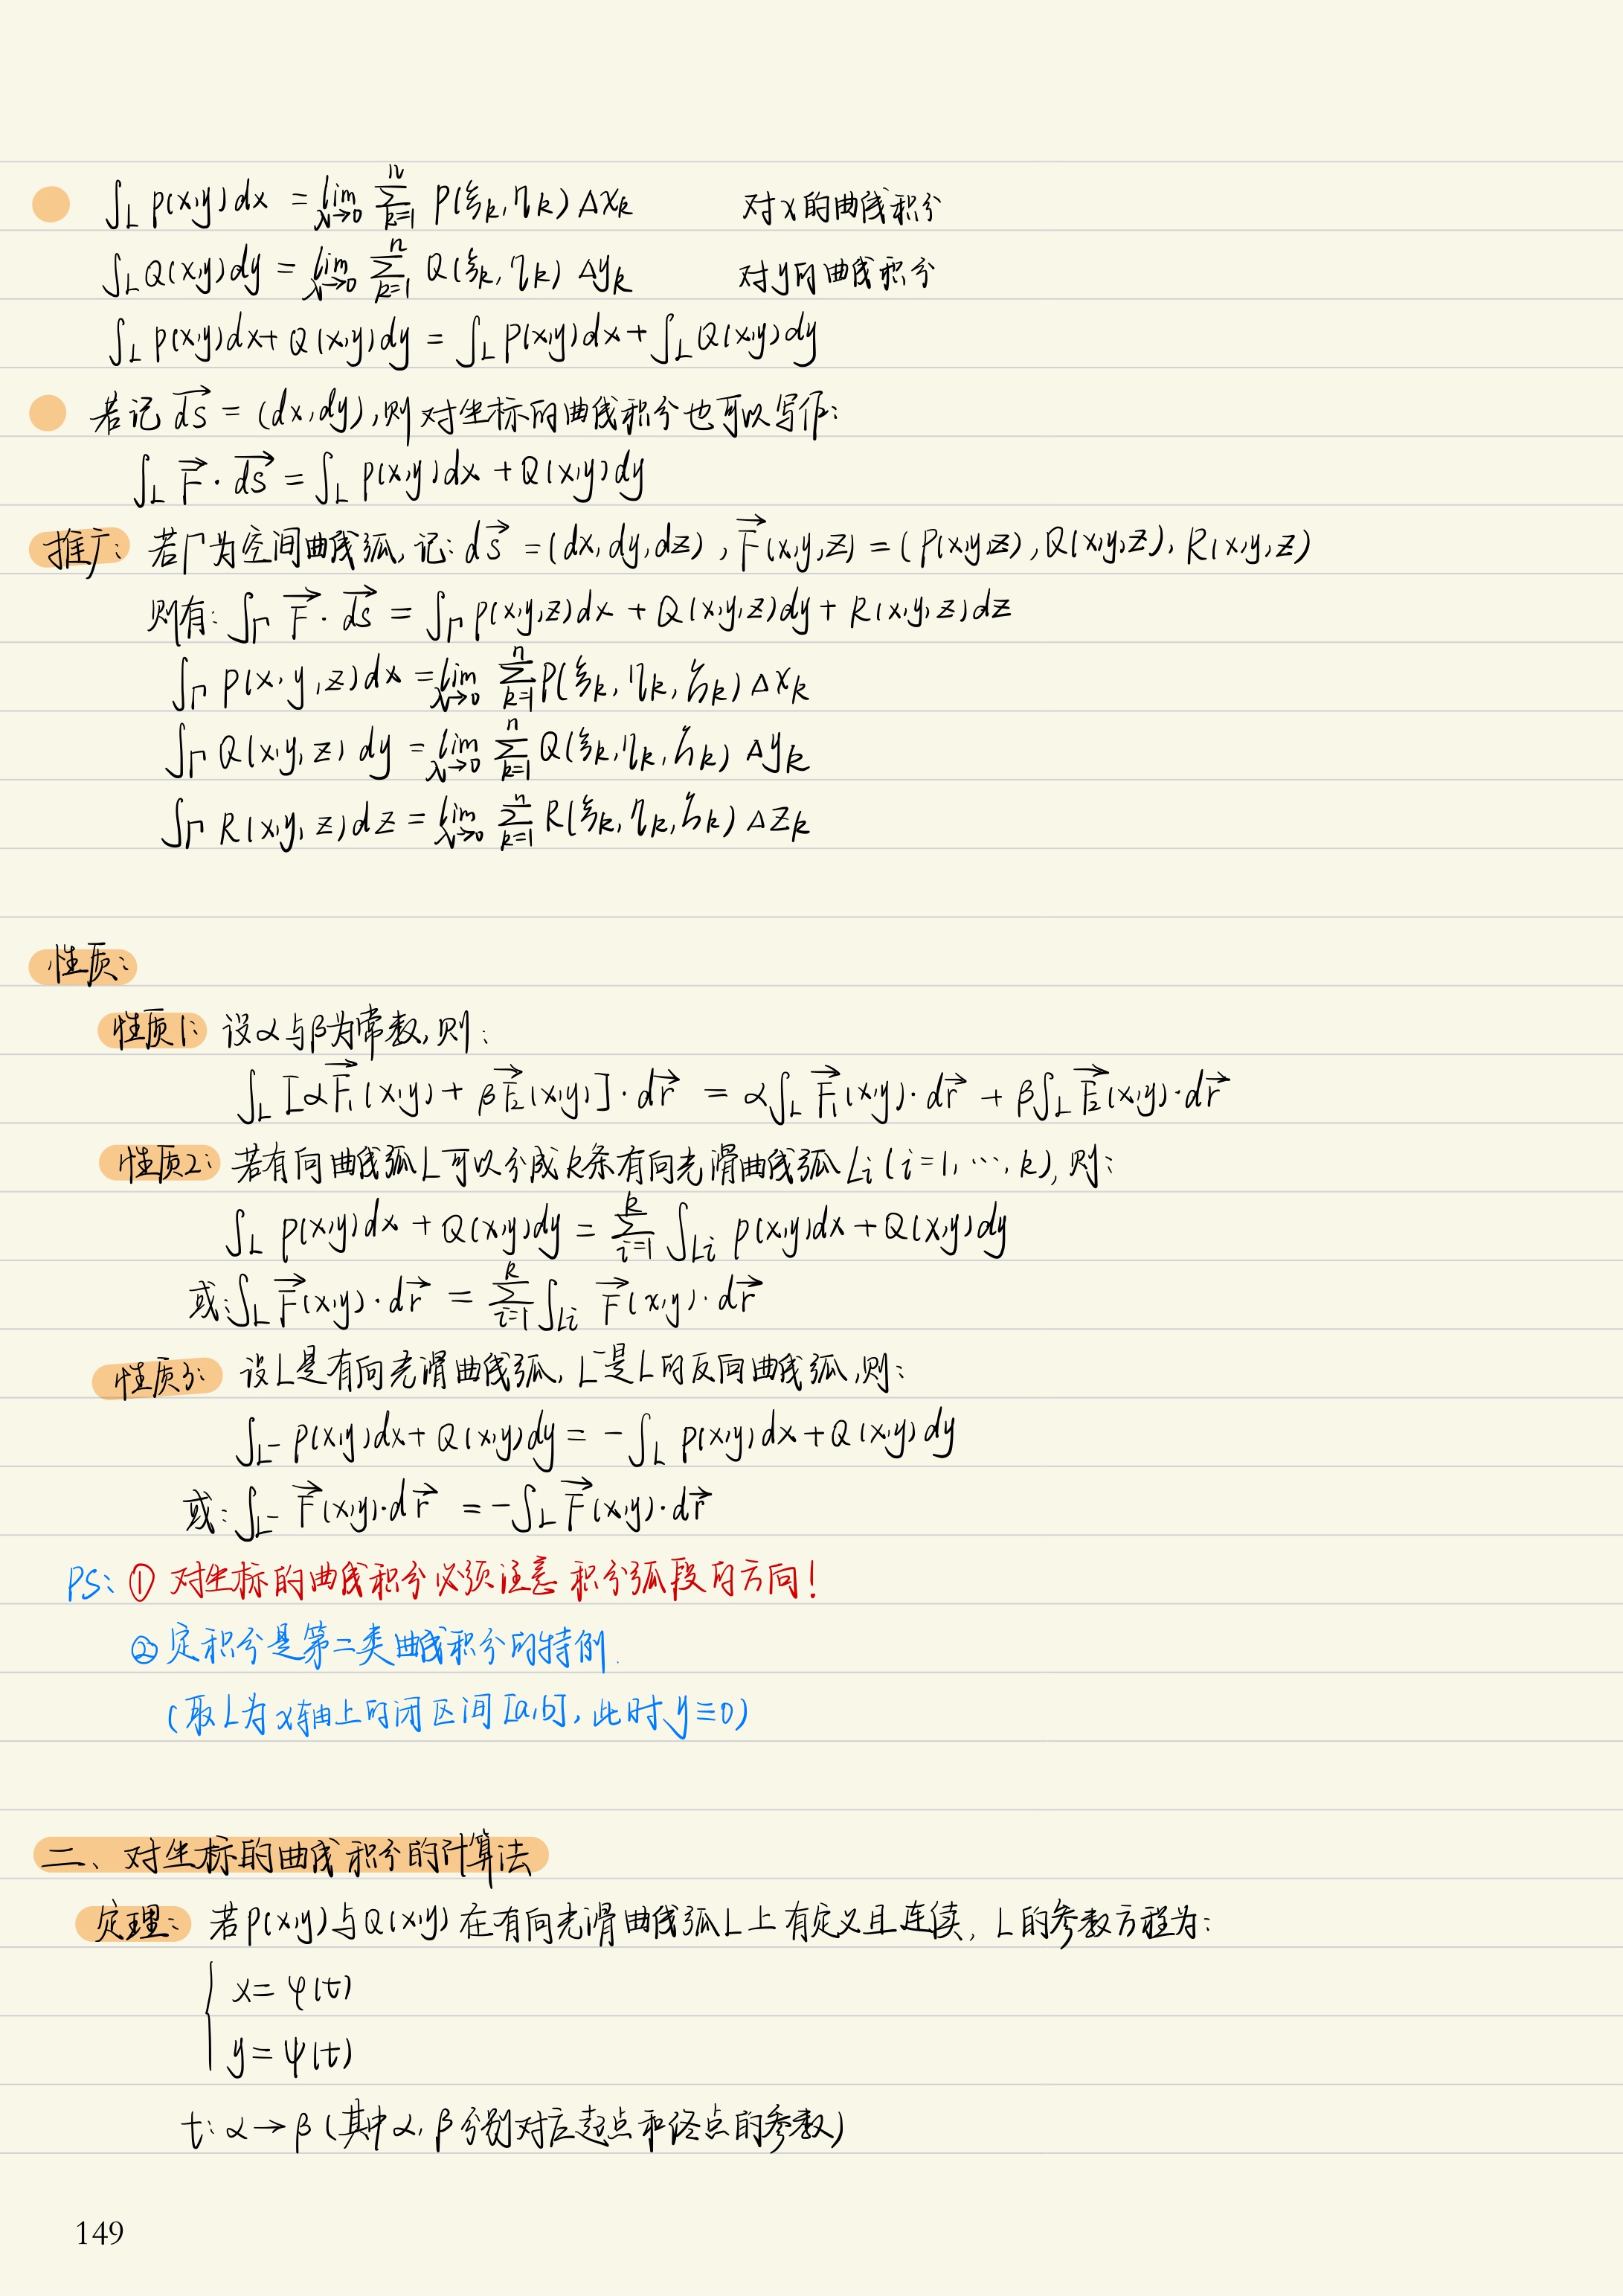 ∫_L P(x,y)dx = lim_{λ→0} ∑_{k=1}^{n} P(ξ_k, η_k) Δx_k 对x的曲线积分
∫_L Q(x,y)dy = lim_{λ→0} ∑_{k=1}^{n} Q(ξ_k, η_k) Δy_k 对y的曲线积分
∫_L P(x,y)dx + Q(x,y)dy = ∫_L P(x,y)dx + ∫_L Q(x,y)dy
若记 \vec{ds} = (dx,dy),则对坐标的曲线积分也可以写作:
∫_L \vec{F}·\vec{ds} = ∫_L P(x,y)dx + Q(x,y)dy
推广: 若Γ为空间曲线弧,记: d\vec{s} = (dx, dy, dz), \vec{F}(x,y,z) = (P(x,y,z), Q(x,y,z), R(x,y,z)
则有: ∫_Γ \vec{F}·\vec{ds} = ∫_Γ P(x,y,z)dx + Q(x,y,z)dy + R(x,y,z)dz
∫_Γ P(x,y,z)dx = lim_{λ→0} ∑_{k=1}^{n} P(ξ_k, η_k, ζ_k) Δx_k
∫_Γ Q(x,y,z)dy = lim_{λ→0} ∑_{k=1}^{n} Q(ξ_k, η_k, ζ_k) Δy_k
∫_Γ R(x,y,z)dz = lim_{λ→0} ∑_{k=1}^{n} R(ξ_k, η_k, ζ_k) Δz_k
性质:
性质1: 设α与β为常数,则:
∫_L [α\vec{F_1}(x,y) + β\vec{F_2}(x,y)]·d\vec{r} = α∫_L \vec{F_1}(x,y)·d\vec{r} + β∫_L \vec{F_2}(x,y)·d\vec{r}
性质2: 若有向曲线弧L可以分成k条有向光滑曲线弧L_i (i=1, ⋯, k),则:
∫_L P(x,y)dx + Q(x,y)dy = ∑_{i=1}^{k} ∫_{L_i} P(x,y)dx + Q(x,y)dy
或: ∫_L \vec{F}(x,y)·d\vec{r} = ∑_{i=1}^{k} ∫_{L_i} \vec{F}(x,y)·d\vec{r}
性质3: 设L是有向光滑曲线弧, L^-是L的反向曲线弧,则:
∫_{L^-} P(x,y)dx + Q(x,y)dy = -∫_L P(x,y)dx + Q(x,y)dy
或: ∫_{L^-} \vec{F}(x,y)·d\vec{r} = -∫_L \vec{F}(x,y)·d\vec{r}
PS: ① 对坐标的曲线积分必须注意积分弧段的方向!
② 定积分是第二类曲线积分的特例.
(取L为x轴上的闭区间[a,b],此时y≡0)
二、对坐标的曲线积分的计算法
定理: 若P(x,y)与Q(x,y)在有向光滑曲线弧L上有定义且连续, L的参数方程为:
{ x = φ(t)
y = ψ(t)
t: α→β (其中α, β分别对应起点和终点的参数)
149